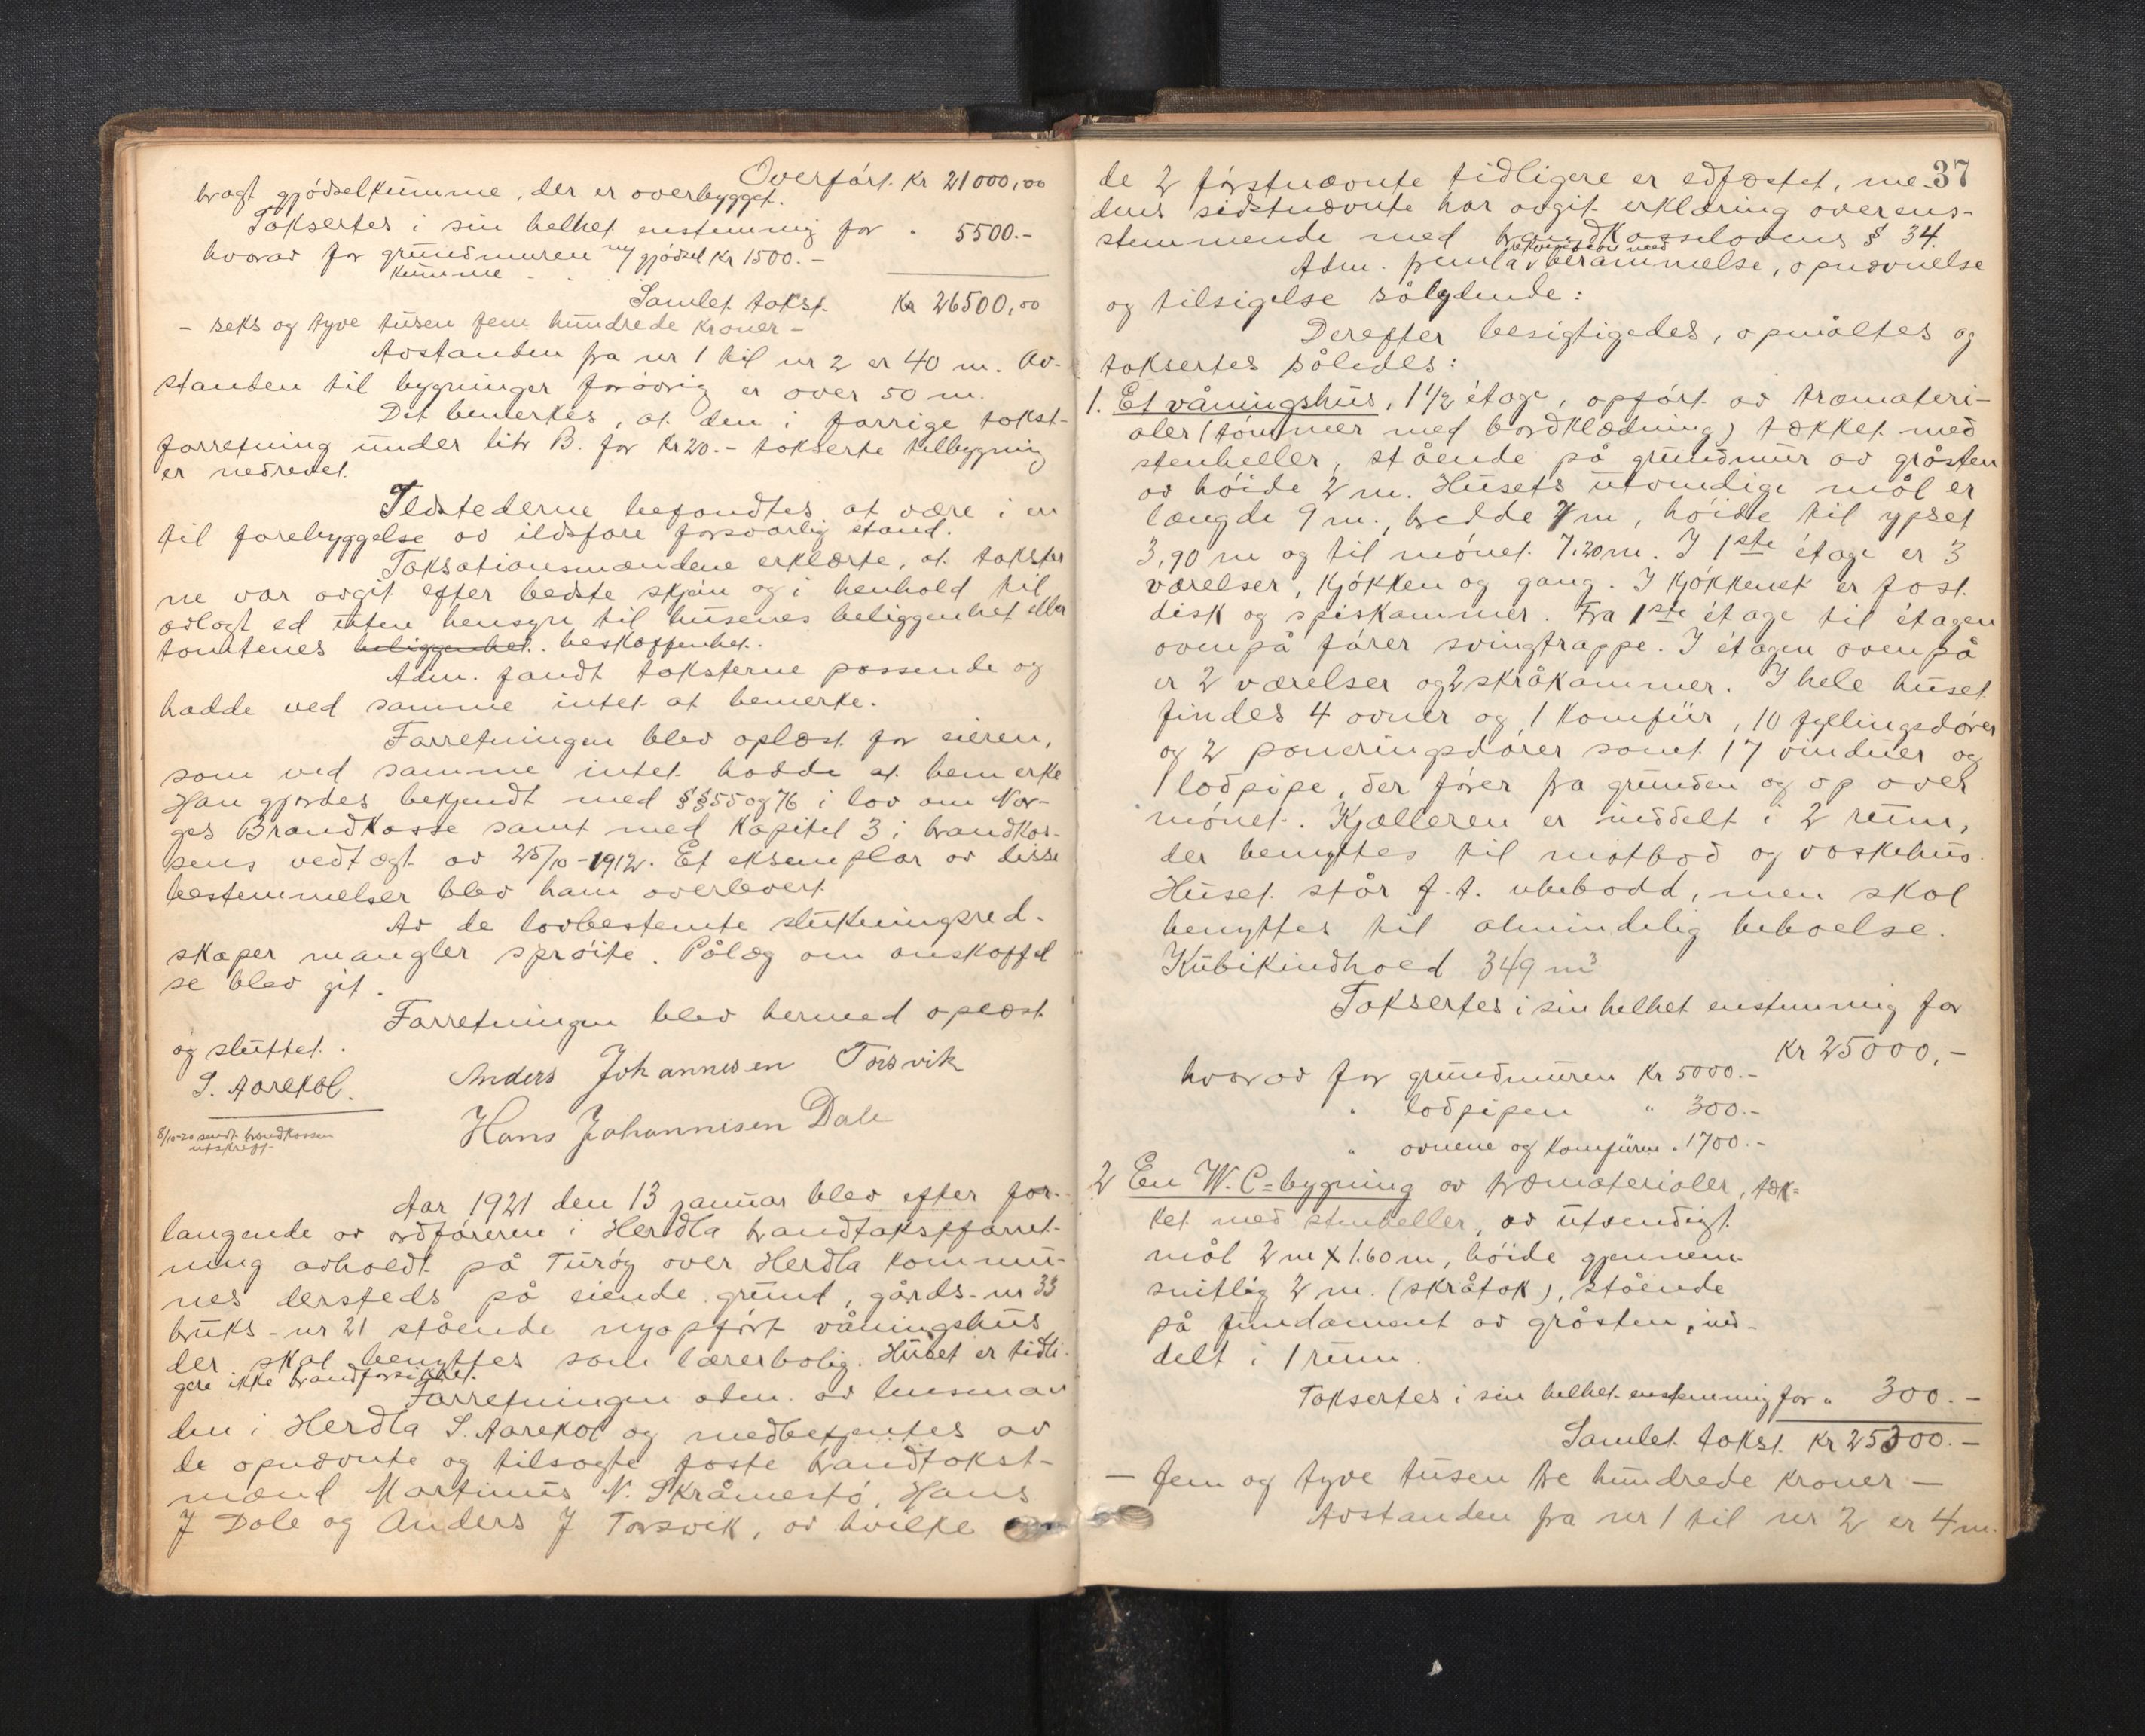 Overført kr 21000,00
bragt gjødselkumme, der er overbygget.
Taksertes i sin helhet enstemmig for " 5500.-
hvorav for grundmuren m/ gjødsel kr 1500.-
kumme
Samlet takst. kr 26500,00
- seks og tyve tusen fem hundrede kroner -
Avstanden fra nr 1 til nr 2 er 40 m. Av-
standen til bygninger forøvrig er over 50 m.
Det bemerkes, at den i forrige takst-
forretning under litr B. for kr 20.- takserte tilbygning
er nedrevet.
Ildstederne befandtes at være i en
til forebyggelse av ildsfare forsvarlig stand.
Taksationsmændene erklærte, at takster
ne var avgit efter bedste skjøn og i henhold til
avlagt ed uten hensyn til husenes beliggenhet eller
tomtenes beliggenhet. beskaffenhet.
Adm. fandt taksterne passende og
hadde ved samme intet at bemerke.
Forretningen blev oplæst for eieren,
som ved samme intet hadde at bemerke
Han gjordes bekjendt med §§ 55 og 76 i lov om Nor-
ges Brandkasse samt med kapitel 3 i brandkas-
sens vedtægt av 25/10-1912. Et eksemplar av disse
bestemmelser blev ham overlevert.
Av de lovbestemte slukningsred-
skaper mangler sprøite. Pålæg om anskaffel
se blev git.
Forretningen blev hermed oplæst
og sluttet.
S. Aarekol. Anders Johannesen Torsvik
Hans Johannesen Dale
8/10-20 sendt brandkassen
utskrift.
Aar 1921 den 13 januar blev efter for-
langende av ordføreren i Herdla brandtakstforret-
ning avholdt på Turøy over Herdla kommu-
nes dersteds på eiende grund, gårds-nr 33
bruks-nr 21 stående nyopført våningshus
der skal benyttes som lærerbolig. Huset er tidli-
gere ikke brandforsikret.
Forretningen adm. av lensman
den i Herdla S. Aarekol og medbetjentes av
de opnævnte og tilsagte faste brandtakst-
mænd Martinus N. Skråmestø, Hans
J Dale og Anders J Torsvik, av hvilke
37
de 2 førstnævnte tidligere er edfæstet, me-
dens sidstnævnte har avgit erklæring overens-
stemmende med brandkasselovens § 34.
rekvisition med
Adm. fremla berammelse, opnævnelse
og tilsigelse sålydende:
Derefter besigtigedes, opmåltes og
taksertes således:
1. Et våningshus, 1 1/2 étage, opført av træmateri-
aler (tømmer med bordklædning) tækket med
stenheller, stående på grundmur av gråsten
av høide 2 m. Husets utvendige mål er
længde 9 m., bredde 7 m, høide til gpset
3,90 m og til mønet 7.20 m. I 1ste étage er 3
værelser, kjøkken og gang. I kjøkkenet er fast
disk og spiskammer. Fra 1ste étage til étagen
ovenpå fører svingtrappe. I étagen ovenpå
er 2 værelser og 2 skråkammer. I hele huset
findes 4 ovner og 1 komfür, 10 fyllingsdører
og 2 paneringsdører samt 17 vinduer og
1 lodpipe, der fører fra grunden og op over
mønet. Kjælleren er inddelt i 2 rum,
der benyttes til matbod og vaskehus.
Huset står f.t. ubebodd, men skal
benyttes til almindelig beboelse.
Kubikindhold 349 m3
Taksertes i sin helhet enstemmig for
kr 25000,-
hvorav for grundmuren kr 5000.-
" lodpipen " 300.-
" ovnene og komfüren " 1700.-
2 En W.C=bygning av træmaterialer, tæk=
ket med stenheller, av utvendigt
mål 2 m x 1.60 m, høide gjennem-
snitlig 2 m. (skråtak), stående
på fundament av gråsten, ind-
delt i 1 rum.
Taksertes i sin helhet enstemmig for " 300.-
Samlet takst kr 25300.-
- fem og tyve tusen tre hundrede kroner -
Avstanden fra nr 1 til nr 2 er 4 m.